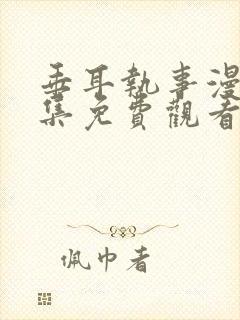 垂耳執事漫
集免費觀看
佩巾者